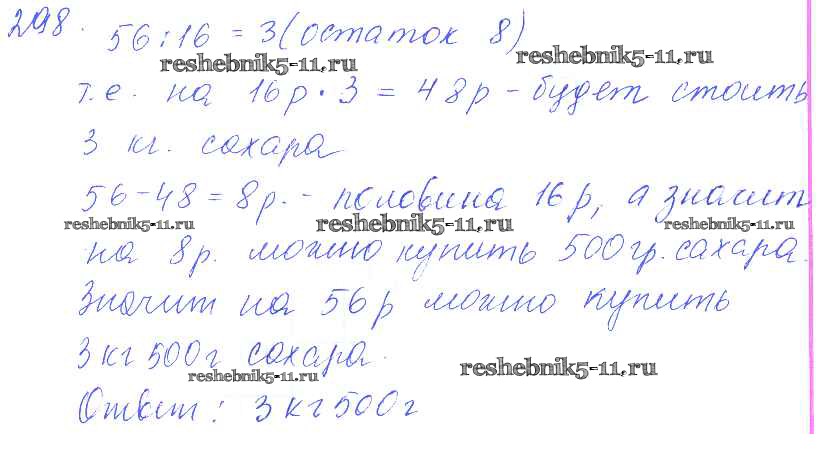 298. 56 : 16 = 3 (остаток 8)
reshebnik5-11.ru reshebnik5-11.ru
т.е. на 16р · 3 = 48р - будет стоить
3 кг. сахара
56 - 48 = 8р. - половина 16р, а значит
reshebnik5-11.ru reshebnik5-11.ru reshebnik5-11.ru
на 8р. можно купить 500гр. сахара.
Значит на 56р можно купить
3 кг 500г сахара.
reshebnik5-11.ru reshebnik5-11.ru
Ответ: 3 кг 500г